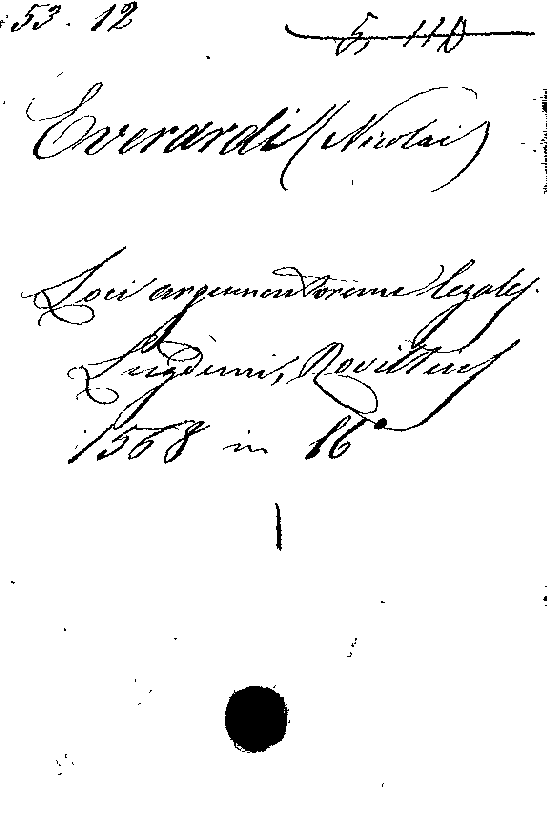 53. 12
5, 110
Everardi (Nicolai)
Loci argumentorum legales.
Lugduni, Rovillius
1568 in 16°